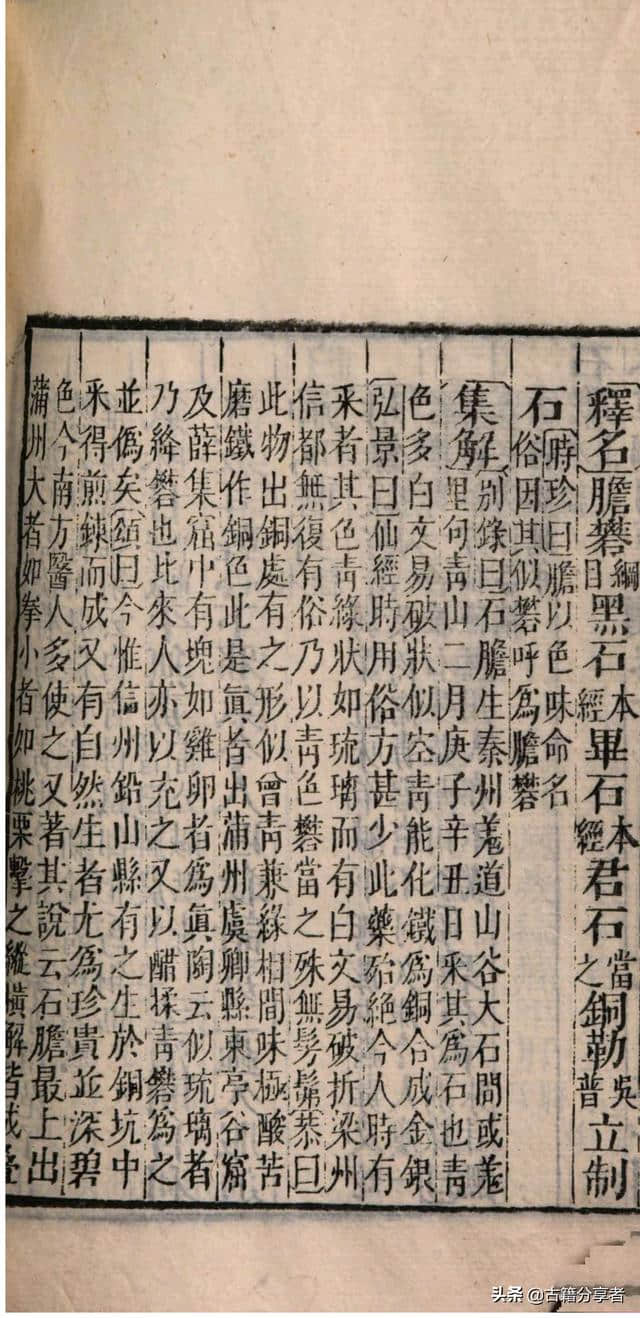 釋名膽礬綱目黑石本經畢石本經君石當之銅勒吳普立制
石時珍曰膽以色味命名
俗因其似礬呼爲膽礬
集解別錄曰石膽生秦州羗道山谷大石間或羗
里句青山二月庚子辛丑日采其爲石也青
色多白文易破狀似空青能化鐵爲銅合成金銀
弘景曰仙經時用俗方甚少此藥殆絶今人時有
采者其色青緑狀如琉璃而有白文易破折梁州
信都無復有俗乃以青色礬當之殊無髣髴恭曰
此物出銅處有之形似曾青兼緑相間味極酸苦
磨鐵作銅色此是眞者出蒲州虞卿縣東亭谷窟
及薛集窟中有塊如雞卵者爲眞陶云似琉璃者
乃絳礬也比來人亦以充之又以醋揉青礬爲之
並僞矣頌曰今惟信州鉛山縣有之生於銅坑中
采得煎鍊而成又有自然生者尤爲珍貴並深碧
色今南方醫人多使之又著其說云石膽最上出
蒲州大者如拳小者如桃栗擊之縱橫解皆成叠
头条 @古籍分享者